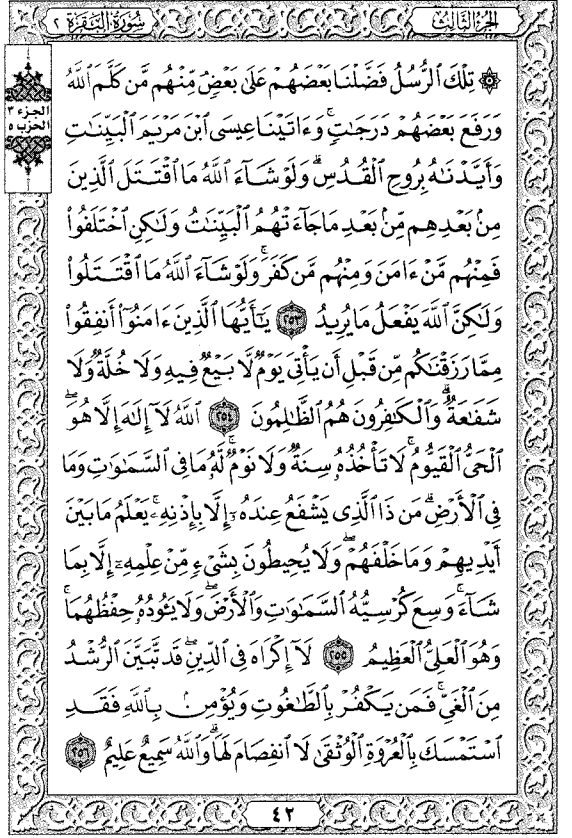 الجزء الثالث
سورة البقرة ٢
الجزء ٣
الحزب ٥
۞ تِلْكَ ٱلرُّسُلُ فَضَّلْنَا بَعْضَهُمْ عَلَىٰ بَعْضٍ ۘ مِّنْهُم مَّن كَلَّمَ ٱللَّهُ
وَرَفَعَ بَعْضَهُمْ دَرَجَٰتٍ ۚ وَءَاتَيْنَا عِيسَى ٱبْنَ مَرْيَمَ ٱلْبَيِّنَٰتِ
وَأَيَّدْنَٰهُ بِرُوحِ ٱلْقُدُسِ ۗ وَلَوْ شَآءَ ٱللَّهُ مَا ٱقْتَتَلَ ٱلَّذِينَ
مِنۢ بَعْدِهِم مِّنۢ بَعْدِ مَا جَآءَتْهُمُ ٱلْبَيِّنَٰتُ وَلَٰكِنِ ٱخْتَلَفُوا۟
فَمِنْهُم مَّنْ ءَامَنَ وَمِنْهُم مَّن كَفَرَ ۚ وَلَوْ شَآءَ ٱللَّهُ مَا ٱقْتَتَلُوا۟
وَلَٰكِنَّ ٱللَّهَ يَفْعَلُ مَا يُرِيدُ ٢٥٣ يَٰٓأَيُّهَا ٱلَّذِينَ ءَامَنُوٓا۟ أَنفِقُوا۟
مِمَّا رَزَقْنَٰكُم مِّن قَبْلِ أَن يَأْتِىَ يَوْمٌ لَّا بَيْعٌ فِيهِ وَلَا خُلَّةٌ وَلَا
شَفَٰعَةٌ ۗ وَٱلْكَٰفِرُونَ هُمُ ٱلظَّٰلِمُونَ ٢٥٤ ٱللَّهُ لَآ إِلَٰهَ إِلَّا هُوَ
ٱلْحَىُّ ٱلْقَيُّومُ ۚ لَا تَأْخُذُهُۥ سِنَةٌ وَلَا نَوْمٌ ۚ لَّهُۥ مَا فِى ٱلسَّمَٰوَٰتِ وَمَا
فِى ٱلْأَرْضِ ۗ مَن ذَا ٱلَّذِى يَشْفَعُ عِندَهُۥٓ إِلَّا بِإِذْنِهِۦ ۚ يَعْلَمُ مَا بَيْنَ
أَيْدِيهِمْ وَمَا خَلْفَهُمْ ۖ وَلَا يُحِيطُونَ بِشَىْءٍ مِّنْ عِلْمِهِۦٓ إِلَّا بِمَا
شَآءَ ۚ وَسِعَ كُرْسِيُّهُ ٱلسَّمَٰوَٰتِ وَٱلْأَرْضَ ۖ وَلَا يَـُٔودُهُۥ حِفْظُهُمَا ۚ
وَهُوَ ٱلْعَلِىُّ ٱلْعَظِيمُ ٢٥٥ لَآ إِكْرَاهَ فِى ٱلدِّينِ ۖ قَد تَّبَيَّنَ ٱلرُّشْدُ
مِنَ ٱلْغَىِّ ۚ فَمَن يَكْفُرْ بِٱلطَّٰغُوتِ وَيُؤْمِنۢ بِٱللَّهِ فَقَدِ
ٱسْتَمْسَكَ بِٱلْعُرْوَةِ ٱلْوُثْقَىٰ لَا ٱنفِصَامَ لَهَا ۗ وَٱللَّهُ سَمِيعٌ عَلِيمٌ ٢٥٦
٤٢